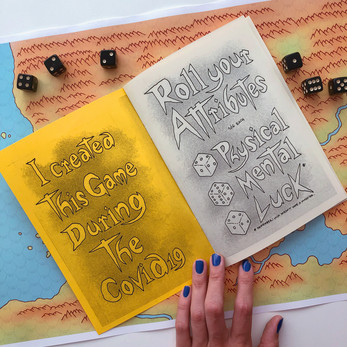 I created
This Game
During
The
Covid19
Roll your
Attributes
Physical
Mental
Luck